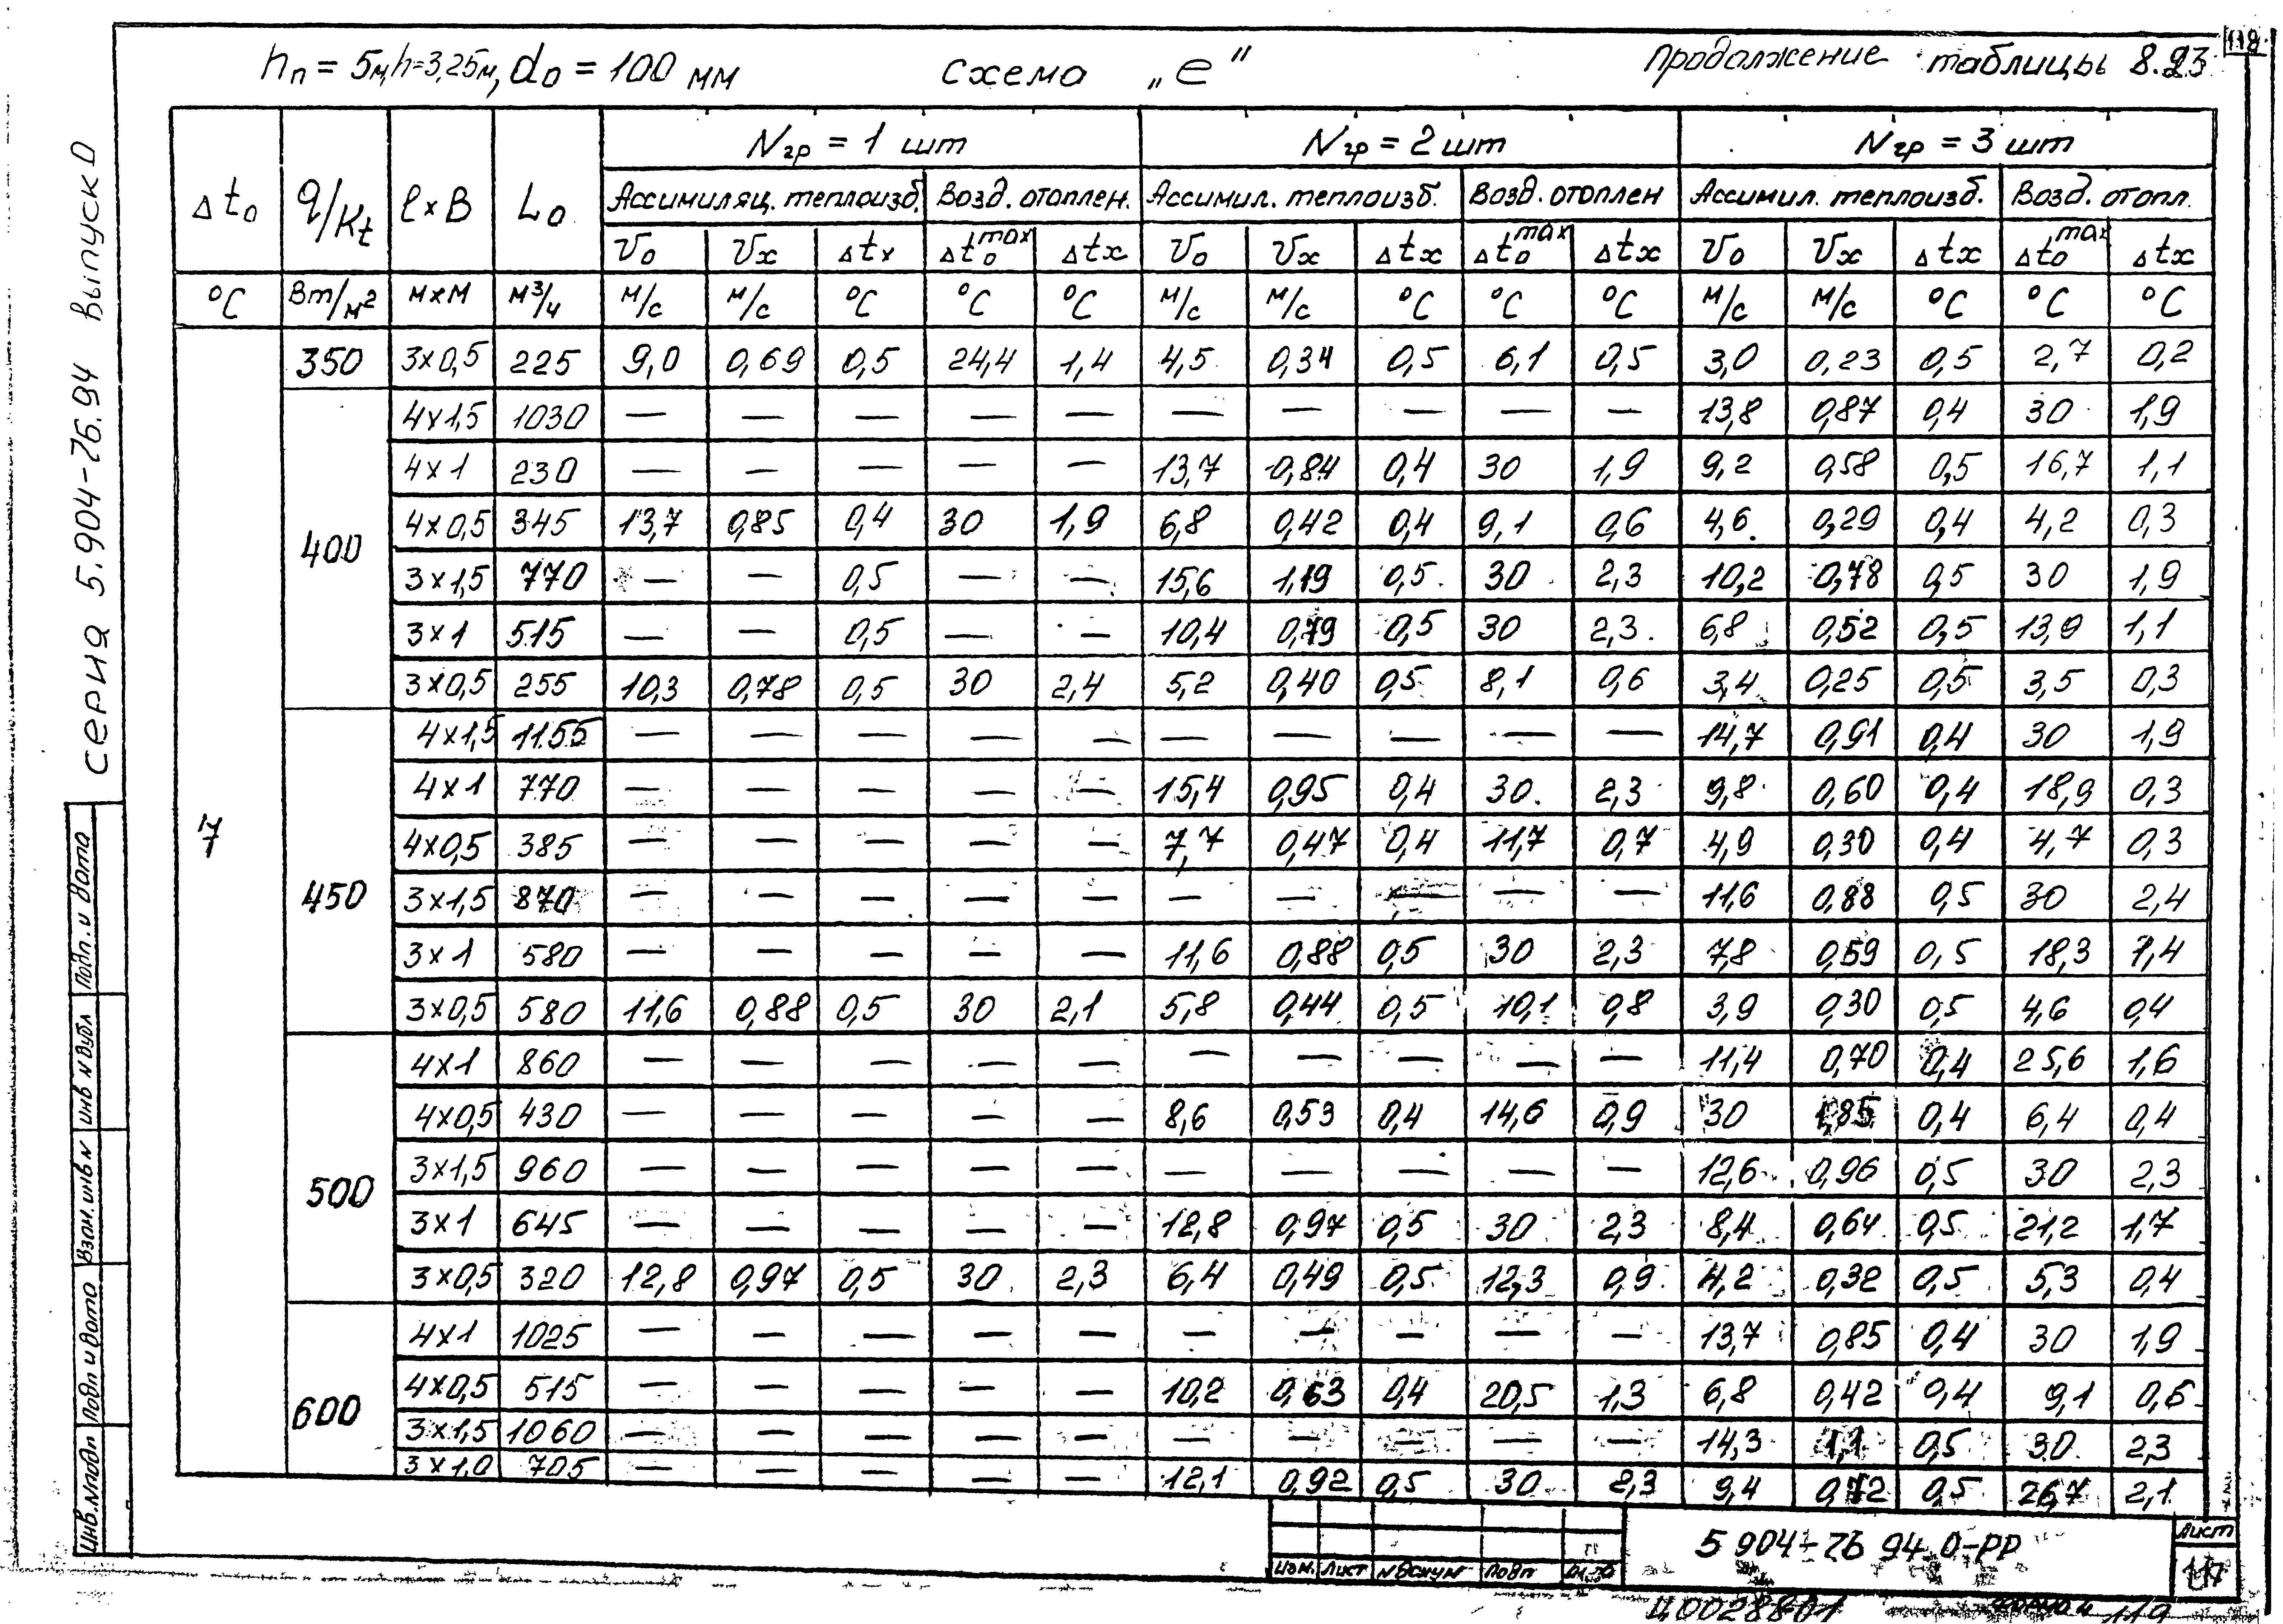 118
hп = 5м, h=3,25м, do = 100 мм схема „е" Продолжение таблицы 8.23
серия 5.904-76.94 выпуск 0
Δto q/Kt ℓ×B Lo Nгр = 1 шт Nгр = 2 шт Nгр = 3 шт
Ассимиляц. теплоизб. Возд. отоплен. Ассимил. теплоизб. Возд. отоплен Ассимил. теплоизб. Возд. отопл.
Vo Vx Δtx Δto max Δtx Vo Vx Δtx Δto max Δtx Vo Vx Δtx Δto max Δtx
°C Вт/м² м×м м³/ч м/с м/с °C °C °C м/с м/с °C °C °C м/с м/с °C °C °C
7
350 3×0,5 225 9,0 0,69 0,5 24,4 1,4 4,5 0,34 0,5 6,1 0,5 3,0 0,23 0,5 2,7 0,2
400
4×1,5 1030 — — — — — — — — — — 13,8 0,87 0,4 30 1,9
4×1 230 — — — — — 13,7 0,84 0,4 30 1,9 9,2 0,58 0,5 16,7 1,1
4×0,5 345 13,7 0,85 0,4 30 1,9 6,8 0,42 0,4 9,1 0,6 4,6 0,29 0,4 4,2 0,3
3×1,5 770 — — 0,5 — — 15,6 1,19 0,5 30 2,3 10,2 0,78 0,5 30 1,9
3×1 515 — — 0,5 — — 10,4 0,79 0,5 30 2,3 6,8 0,52 0,5 13,9 1,1
3×0,5 255 10,3 0,78 0,5 30 2,4 5,2 0,40 0,5 8,1 0,6 3,4 0,25 0,5 3,5 0,3
450
4×1,5 1155 — — — — — — — — — — 14,7 0,91 0,4 30 1,9
4×1 770 — — — — — 15,4 0,95 0,4 30 2,3 9,8 0,60 0,4 18,9 0,3
4×0,5 385 — — — — — 7,7 0,47 0,4 11,7 0,7 4,9 0,30 0,4 4,7 0,3
3×1,5 870 — — — — — — — — — — 11,6 0,88 0,5 30 2,4
3×1 580 — — — — — 11,6 0,88 0,5 30 2,3 7,8 0,59 0,5 18,3 1,4
3×0,5 580 11,6 0,88 0,5 30 2,1 5,8 0,44 0,5 10,1 0,8 3,9 0,30 0,5 4,6 0,4
500
4×1 860 — — — — — — — — — — 11,4 0,70 0,4 25,6 1,6
4×0,5 430 — — — — — 8,6 0,53 0,4 14,6 0,9 30 1,85 0,4 6,4 0,4
3×1,5 960 — — — — — — — — — — 12,6 0,96 0,5 30 2,3
3×1 645 — — — — — 12,8 0,97 0,5 30 2,3 8,4 0,64 0,5 21,2 1,7
3×0,5 320 12,8 0,97 0,5 30 2,3 6,4 0,49 0,5 12,3 0,9 4,2 0,32 0,5 5,3 0,4
600
4×1 1025 — — — — — — — — — — 13,7 0,85 0,4 30 1,9
4×0,5 515 — — — — — 10,2 0,63 0,4 20,5 1,3 6,8 0,42 0,4 9,1 0,6
3×1,5 1060 — — — — — — — — — — 14,3 1,1 0,5 30 2,3
3×1,0 705 — — — — — 12,1 0,92 0,5 30 2,3 9,4 0,72 0,5 26,7 2,1
Инв.№подл Подп и дата Взам.инв № Инв № дубл Подп. и дата
Изм. Лист № докум Подп
5 904-76 94.0-РР
Лист
117
Ц00288-01 119